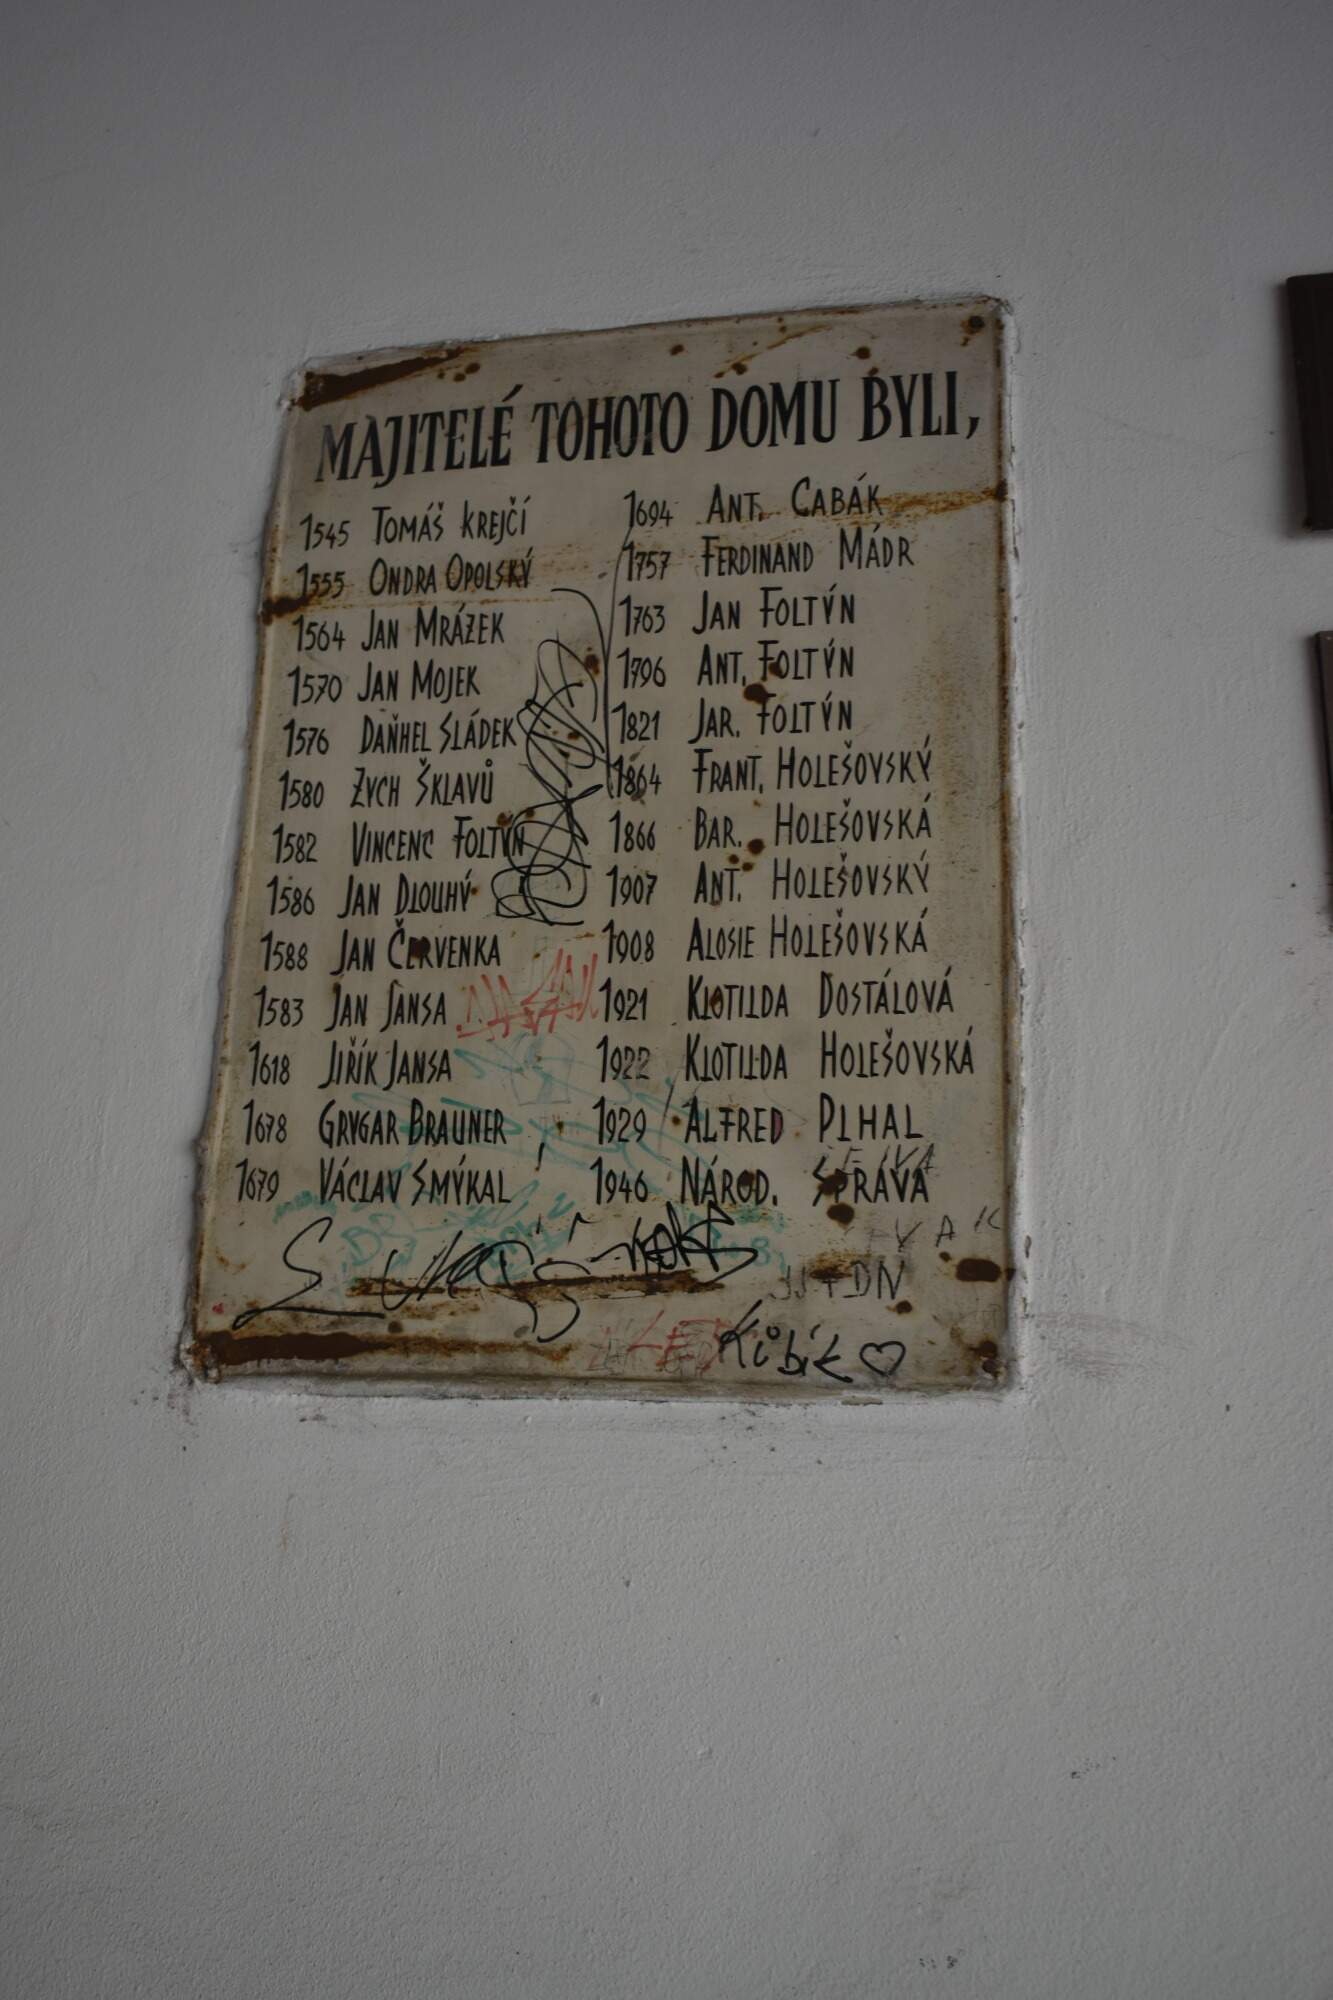 MAJITELÉ TOHOTO DOMU BYLI,
1545 TOMÁŠ KREJČÍ
1555 ONDRA OPOLSKÝ
1564 JAN MRÁZEK
1570 JAN MOJEK
1576 DAŇHEL SLÁDEK
1580 ZYCH ŠKLAVŮ
1582 VINCENC FOLTÝN
1586 JAN DLOUHÝ
1588 JAN ČERVENKA
1583 JAN JANSA
1618 JIŘÍK JANSA
1678 GRYGAR BRAUNER
1679 VÁCLAV SMÝKAL
1694 ANT. CABÁK
1757 FERDINAND MÁDR
1763 JAN FOLTÝN
1796 ANT. FOLTÝN
1821 JAR. FOLTÝN
1864 FRANT. HOLEŠOVSKÝ
1866 BAR. HOLEŠOVSKÁ
1907 ANT. HOLEŠOVSKÝ
1908 ALOSIE HOLEŠOVSKÁ
1921 KLOTILDA DOSTÁLOVÁ
1922 KLOTILDA HOLEŠOVSKÁ
1929 ALFRED PLHAL
1946 NÁROD. SPRÁVA
Kůbík